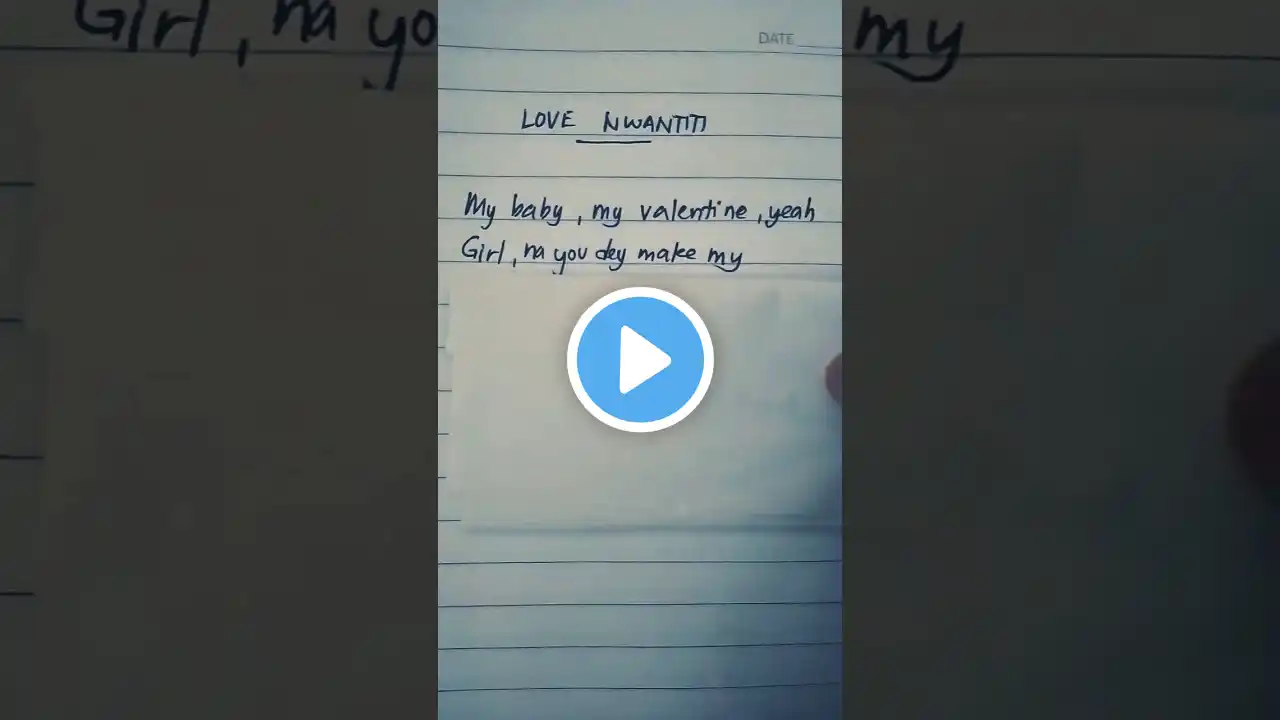 DATE
LOVE NWANTITI
My baby, my valentine, yeah
Girl, na you dey make my
Girl, na yo
my